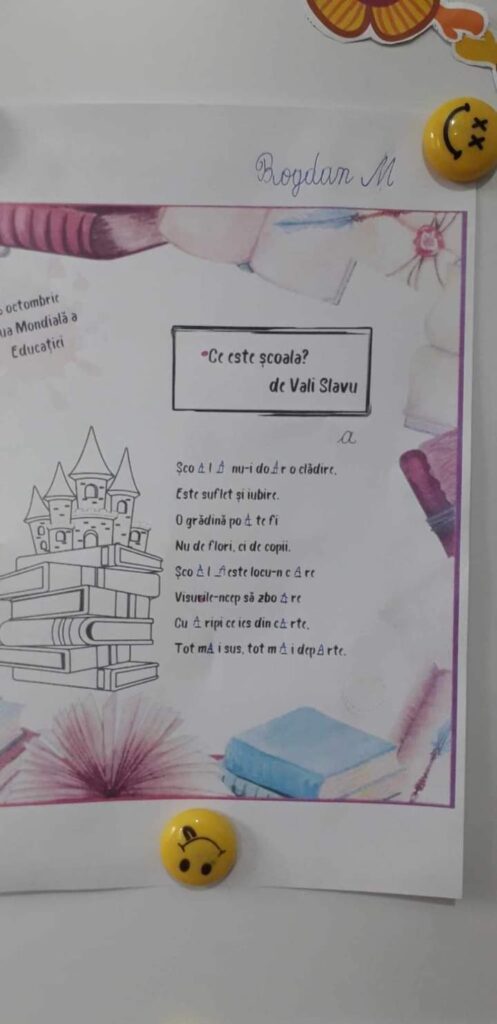 Bogdan M
octombrie
ua Mondială a
Educației
Ce este școala?
de Vali Slavu
a
ȘcoAlA nu-i doAr o clădire,
Este suflet și iubire.
O grădină poAte fi
Nu de flori, ci de copii.
ȘcoAlA este locu-n cAre
Visurile-ncep să zboAre
Cu Aripi ce ies din cArte,
Tot mAi sus, tot mAi depArte.